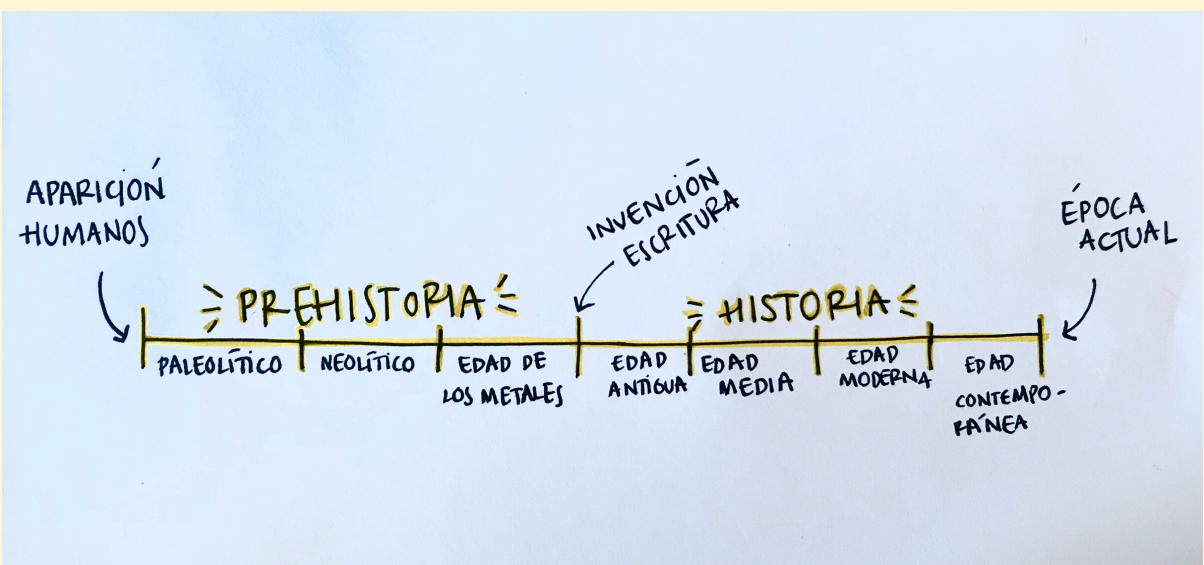 APARICIÓN
HUMANOS
INVENCIÓN
ESCRITURA
ÉPOCA
ACTUAL
PREHISTORIA
HISTORIA
PALEOLÍTICO
NEOLÍTICO
EDAD DE
LOS METALES
EDAD
ANTIGUA
EDAD
MEDIA
EDAD
MODERNA
EDAD
CONTEMPO-
RÁNEA